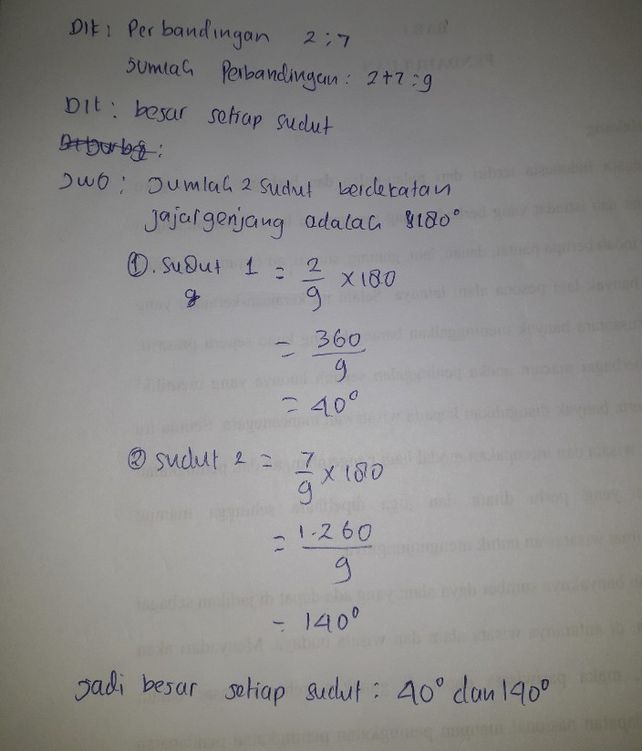 Dik: Perbandingan 2:7
Jumlah Perbandingan: 2+7:9
Dit: besar setiap sudut
Jwb: Jumlah 2 sudut berdekatan
jajargenjang adalah 180°
①. Sudut 1 = 2/9 x 180
= 360/9
= 40°
② sudut 2 = 7/9 x 180
= 1.260/9
= 140°
Jadi besar setiap sudut: 40° dan 140°